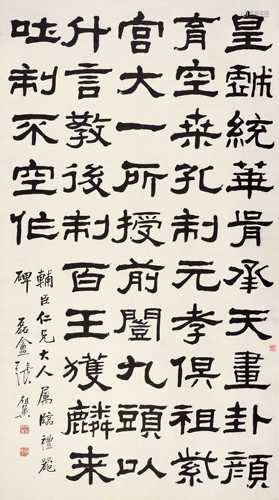 皇戲統華胥承天畫卦顏
育空桒孔制元孝俱祖紫
宮大一所授前闓九頭以
什言教後制百王獲麟來
吐制不空作
輔臣仁兄大人屬臨禮器
碑 磊盦張祖翼